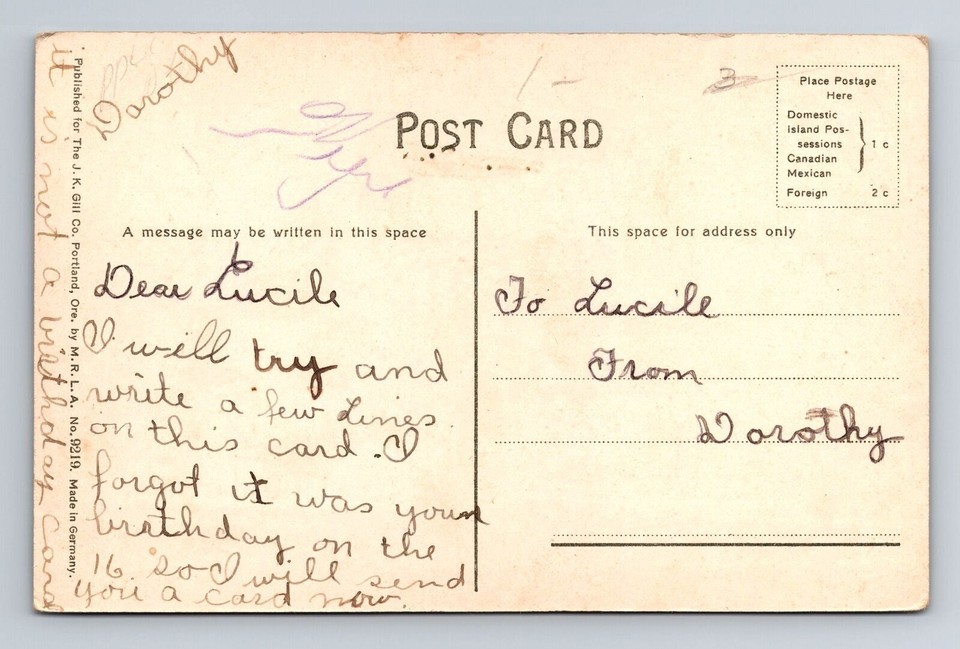 Dorothy
3
POST CARD
Place Postage
Here
Domestic
Island Pos-
sessions
Canadian
Mexican
1 c
Foreign 2 c
A message may be written in this space
This space for address only
Dear Lucile
I will try and
write a few Lines
on this card. I
forgot it was your
birthday on the
16. so I will send
you a card now.
it is not a birthday card
Published for The J. K. Gill Co. Portland, Ore. by M. R. L. A. No. 9219. Made in Germany.
To Lucile
From
Dorothy